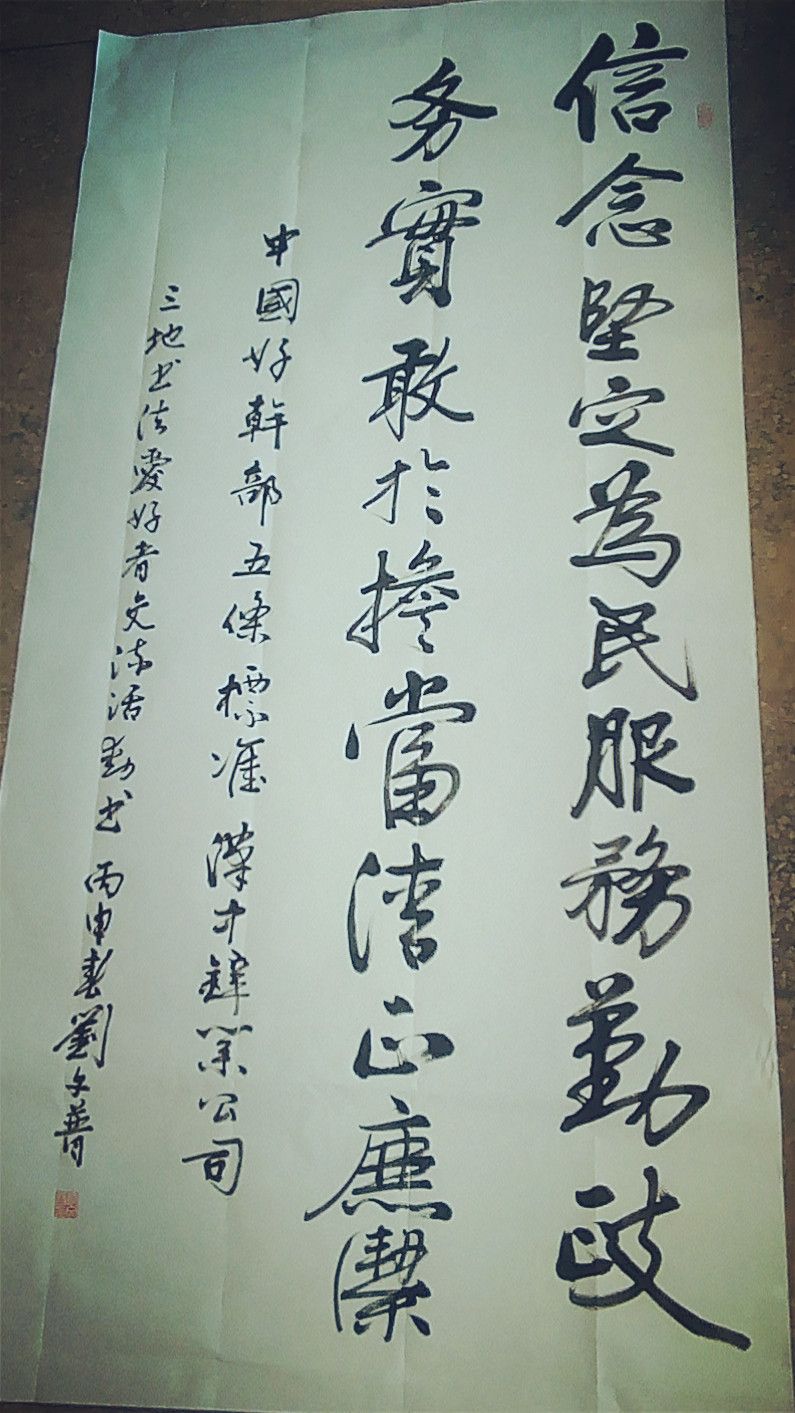 信念堅定為民服務勤政
务實敢於擔當清正廉潔
中國好幹部五條標准 漢中鋅業公司
三地书法愛好者交流活動书 丙申春劉文普